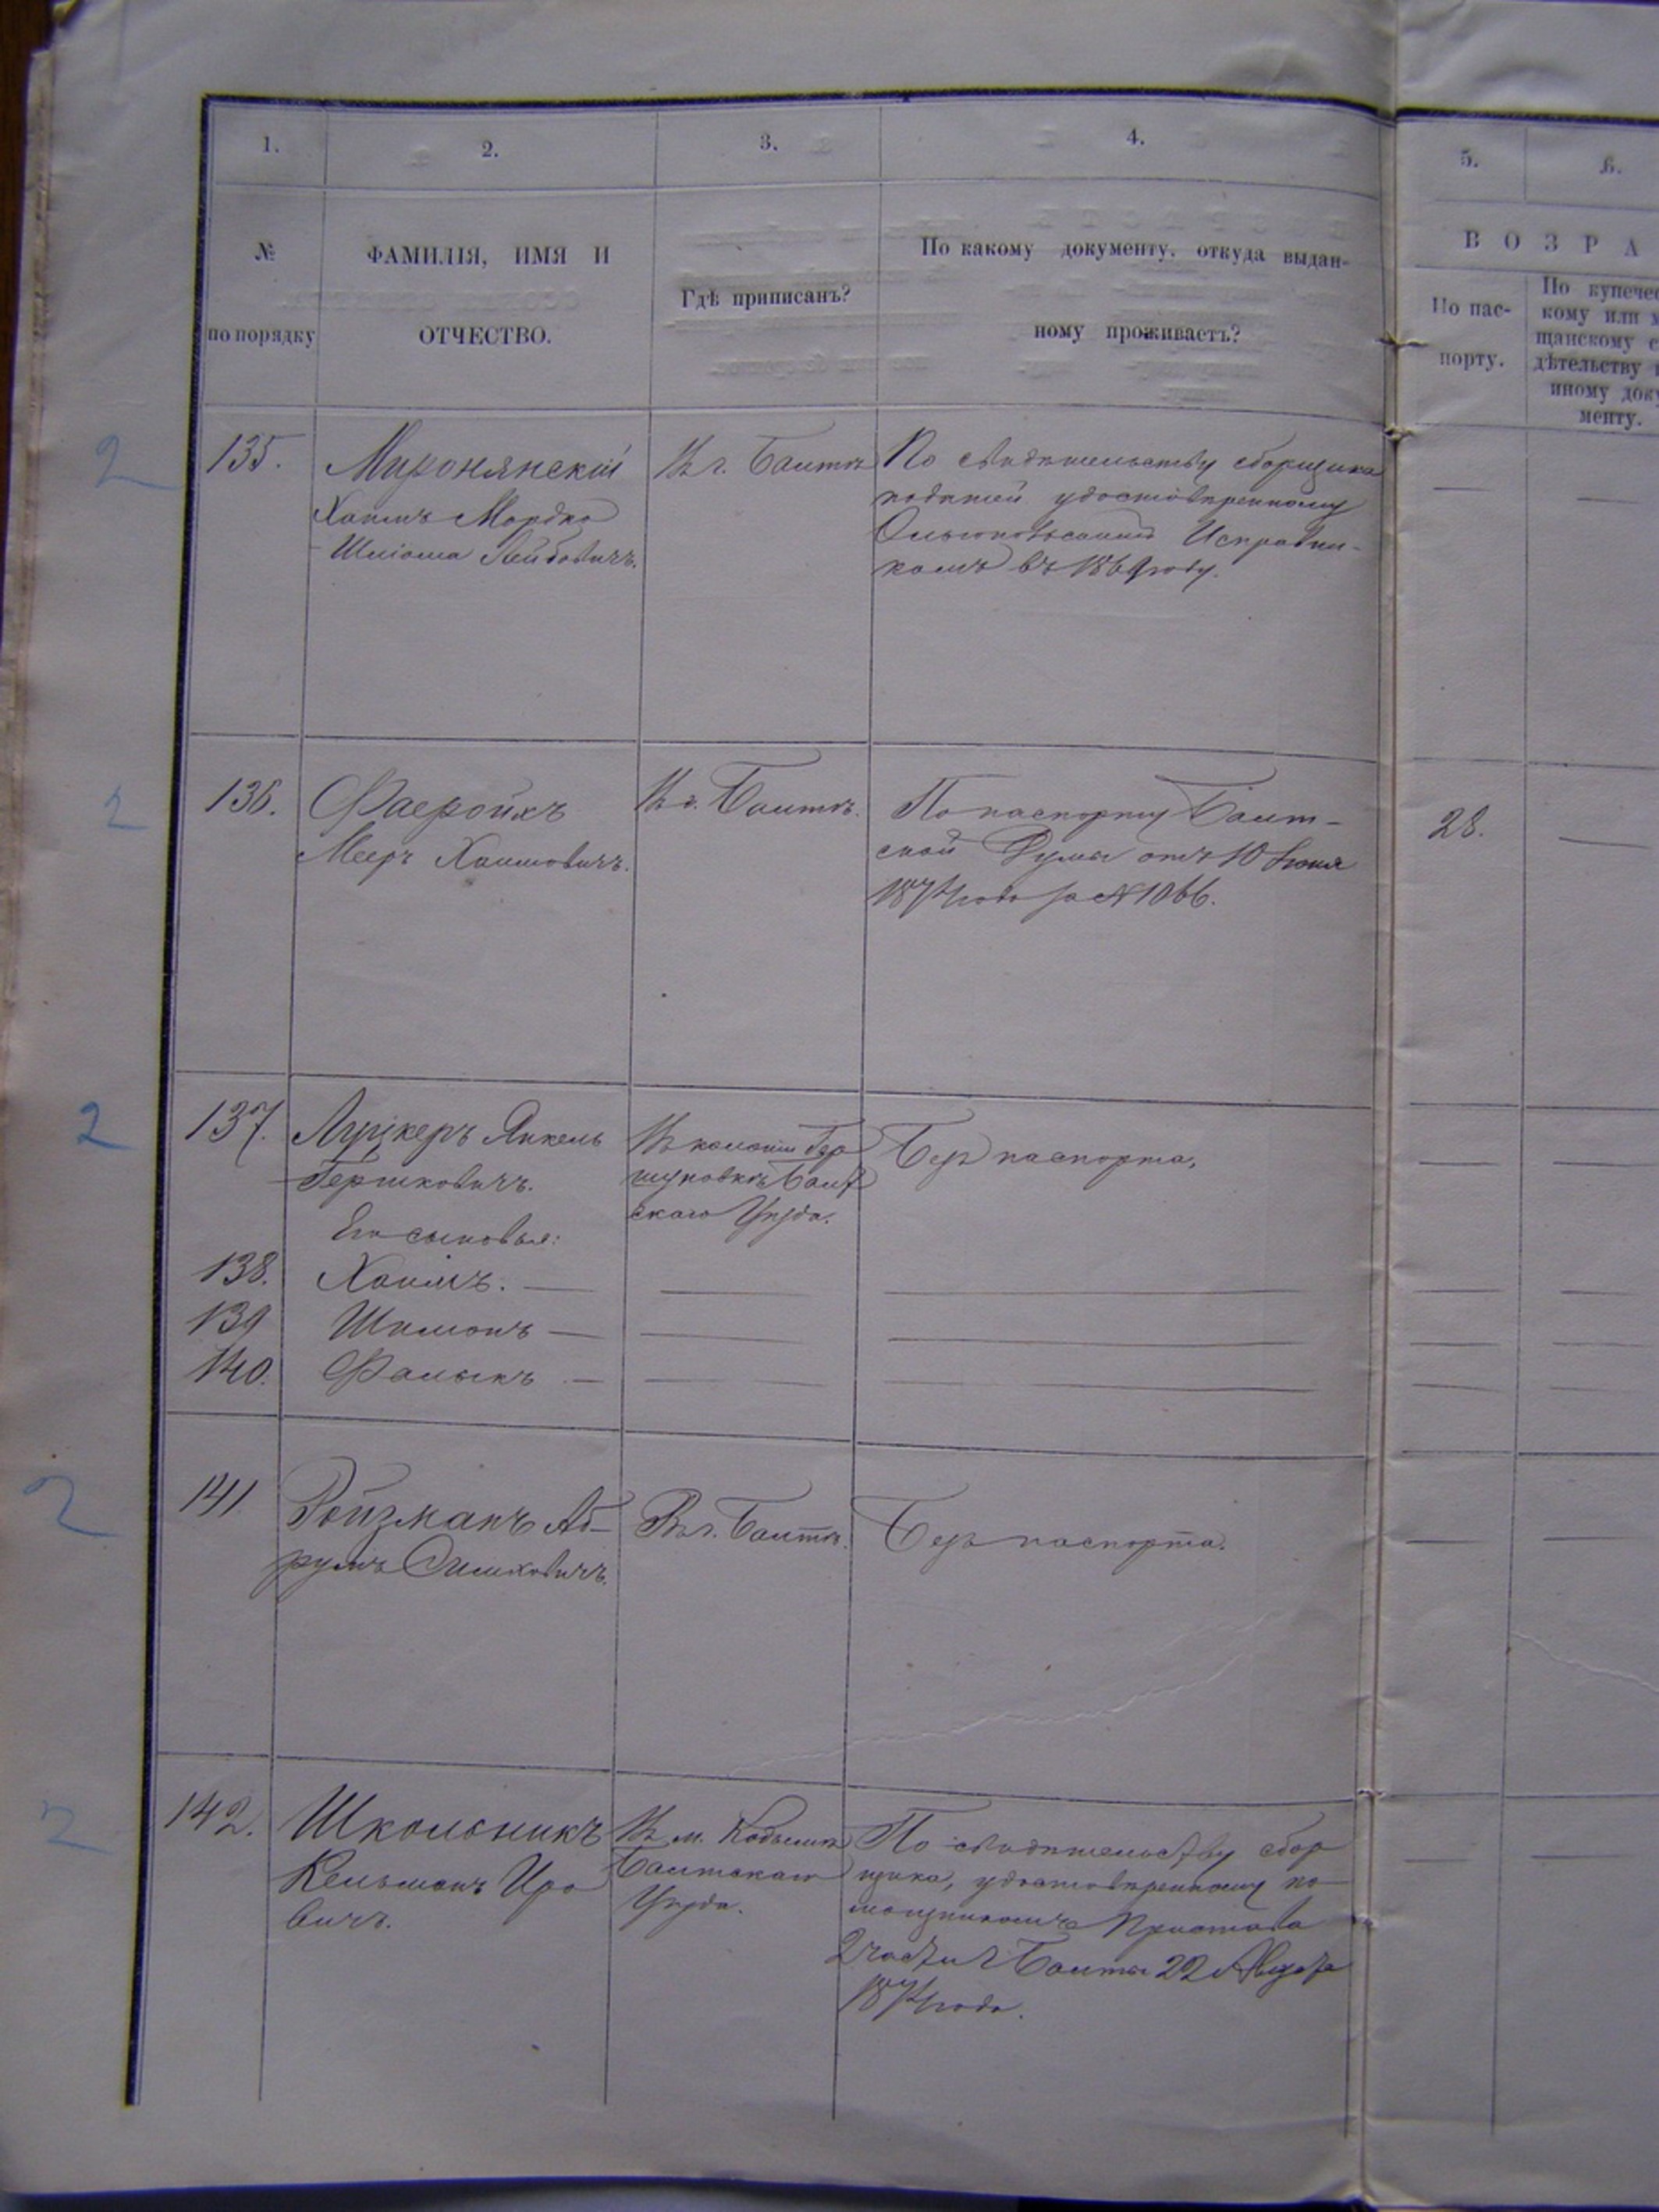 1.
2.
3.
4.
5.
6.
№
по порядку
ФАМИЛІЯ, ИМЯ И
ОТЧЕСТВО.
Гдѣ приписанъ?
По какому документу, откуда выдан-
ному проживаетъ?
ВОЗРА
По пас-
порту.
По купечес
кому или м
щанскому с
дѣтельству и
иному доку
менту.
2
135.
Миронянскій
Хаимъ Мордко
Шлiома Лейбовичъ.
Въ г. Балтѣ
По свидѣтельству сборщика
податей удостовѣренному
Исправни-
комъ въ 1869 году.
—
—
2
136.
Фаеройхъ
Мееръ Хаимовичъ.
Въ г. Балтѣ.
По паспорту Балт-
ской Думы отъ 10 Іюня
1874 года за № 1066.
28.
—
2
137.
Луцкеръ Янкель
Гершковичъ.
Въ колоніи Гер
шуновкѣ Балт
скаго Уѣзда.
Безъ паспорта.
—
—
Его сыновья:
138.
Хаимъ. —
139
Шимонъ —
140.
Фалыкъ —
2
141
Ройзманъ Аб-
румъ Симховичъ.
Въ г. Балтѣ.
Безъ паспорта.
—
—
2
142.
Школьникъ
Кельманъ Иро
вичъ.
Въ м. Кодымѣ
Балтскаго
Уѣзда.
По свидѣтельству сбор
щика, удостовѣренному по-
мощникомъ Пристава
2 части г Балты 22 Августа
1874 года.
—
—